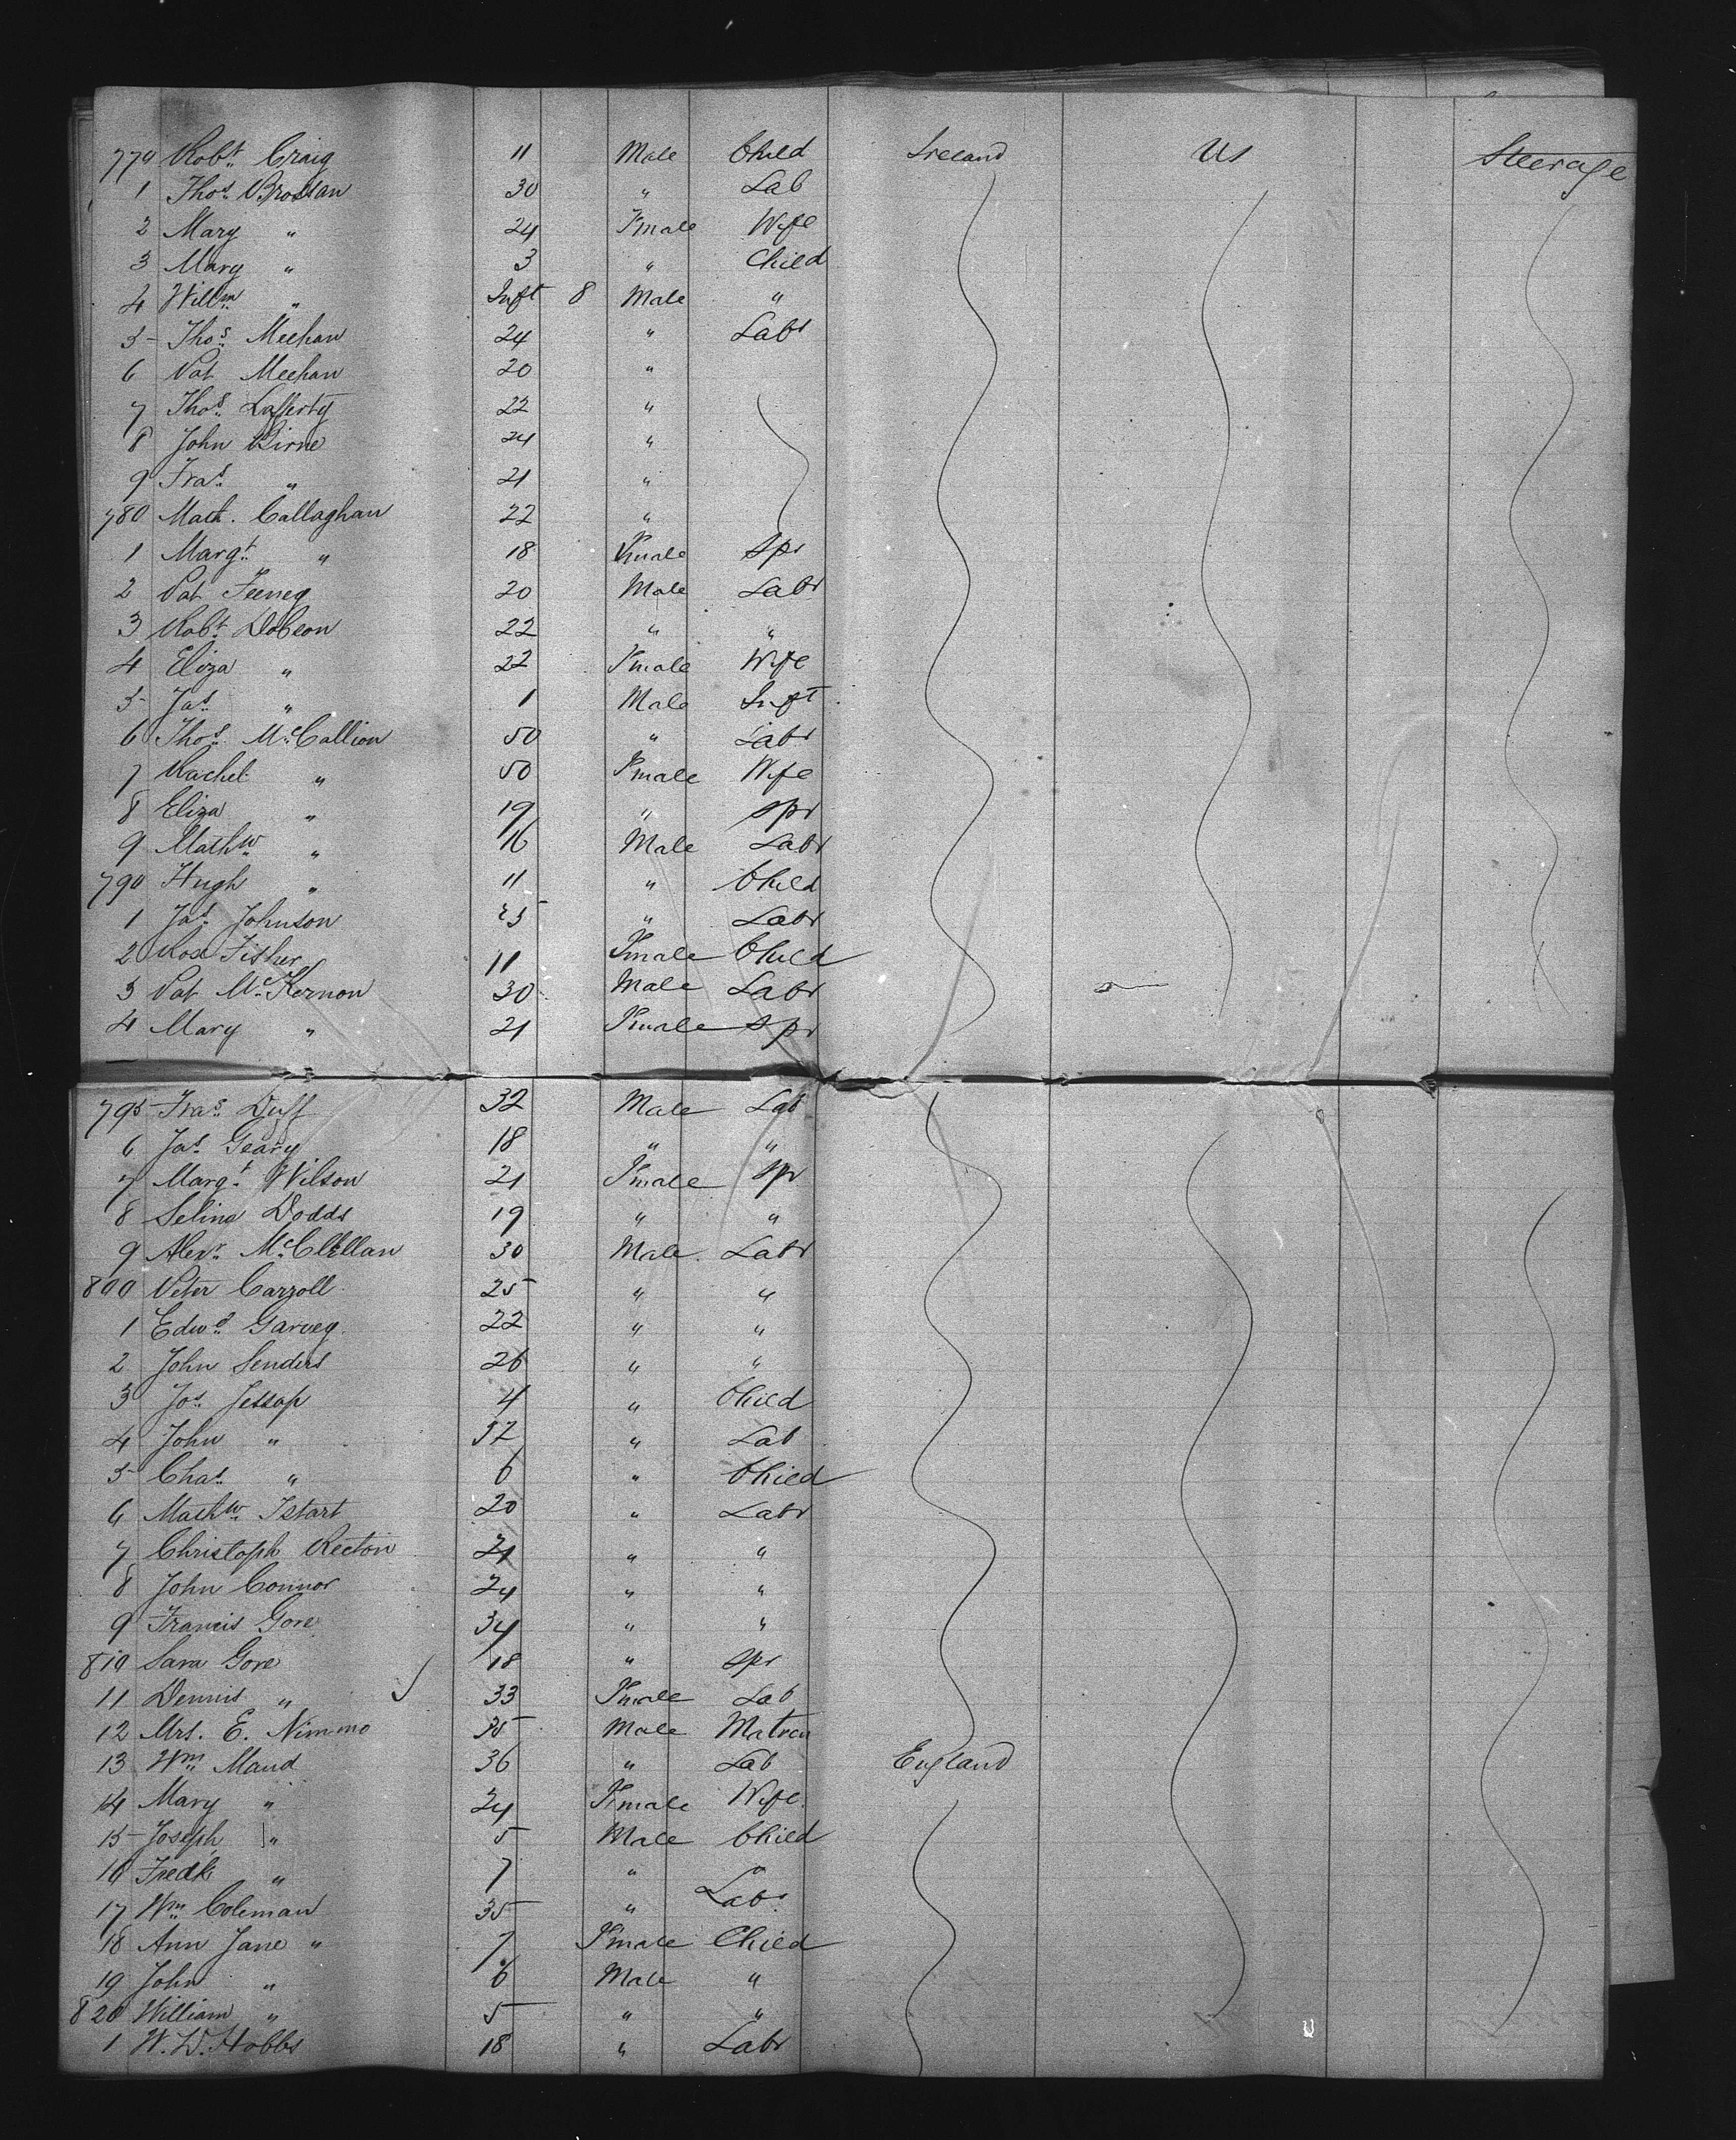 770 Robt. Craig 11 Male Child Ireland US Steerage
1 Thos. Brossan 30 " Lab
2 Mary " 24 Fmale Wife
3 Mary " 3 " Child
4 Willm. " Inft 8 Male "
5 Thos. Meehan 24 " Labr
6 Pat Meehan 20 "
7 Thos. Lafferty 22 "
8 John Birne 24 "
9 Fras. " 21 "
780 Math. Callaghan 22 "
1 Margt. " 18 Fmale Spr
2 Pat Feeney 20 Male Labr
3 Robt. Dobson 22 " "
4 Eliza " 22 Fmale Wife
5 Jas. " 1 Male Inft
6 Thos. McCallion 50 " Labr
7 Rachel " 50 Fmale Wife
8 Eliza " 19 " Spr
9 Mathw. " 16 Male Labr
790 Hugh " 11 " Child
1 Jas. Johnson 25 " Labr
2 Rose Fisher 11 Fmale Child
3 Pat McKernon 30 Male Labr
4 Mary " 21 Fmale Spr
795 Fras. Duff 32 Male Lab
6 Jas. Geary 18 " "
7 Margt. Wilson 21 Fmale Spr
8 Selina Dodds 19 " "
9 Alexr. McClellan 30 Male Labr
800 Peter Carroll 25 " "
1 Edwd. Garvey 22 " "
2 John Senders 26 " "
3 Jos. Jessop 4 " Child
4 John " 37 " Lab
5 Chas. " 6 " Child
6 Mathw. Istart 20 " Labr
7 Christoph Recton 21 " "
8 John Connor 24 " "
9 Francis Gore 34 " "
810 Sara Gore 18 " Spr
11 Dennis " 33 Fmale Lab
12 Mrs. E. Nimmo 35 Male Matron
13 Wm. Maud 36 " Lab England
14 Mary " 24 Fmale Wife
15 Joseph " 5 Male Child
16 Fredk " 7 " "
17 Wm. Coleman 35 " Labr
18 Ann Jane " 7 Fmale Child
19 John " 6 Male "
820 William " 5 " "
1 W. D. Hobbs 18 " Labr